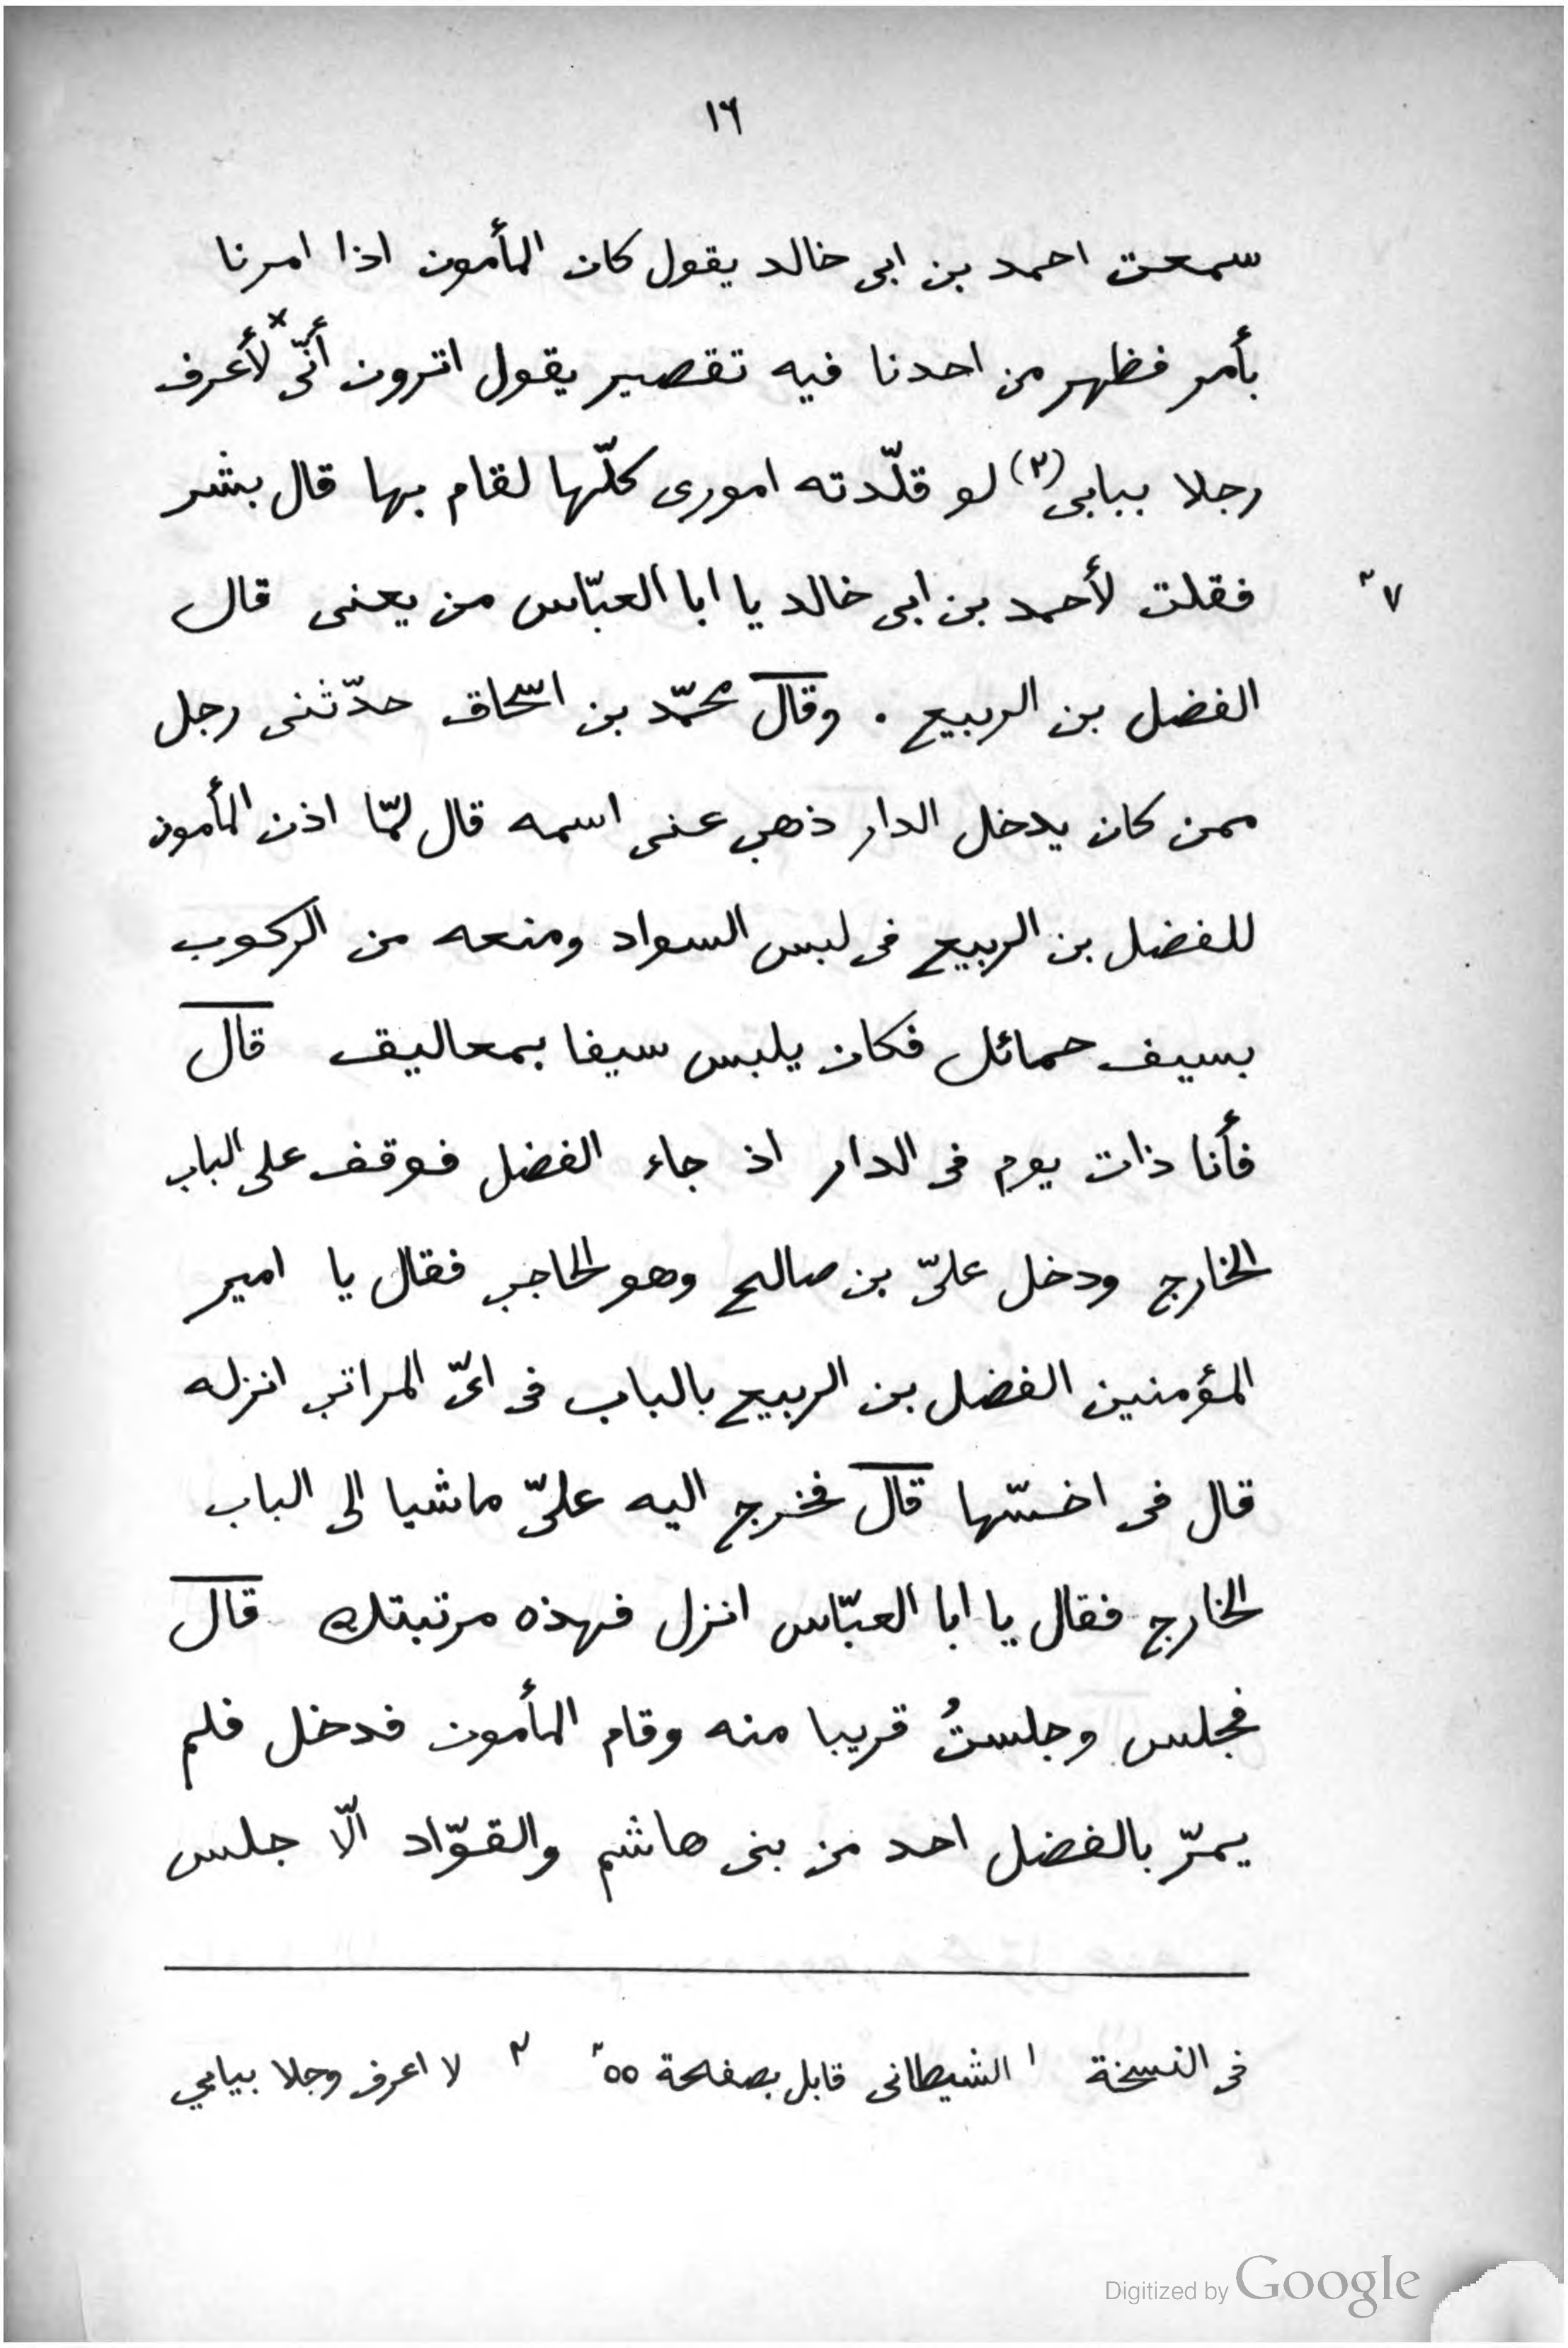 ١٦
سمعت احمد بن ابى خالد يقول كان المأمون اذا امرنا
بأمر فظهر من احدنا فيه تقصير يقول اترون أنّى × لأعرف
رجلا ببابى (٢) لو قلّدته امورى كلّها لقام بها قال بشر
فقلت لأحمد بن ابى خالد يا ابا العبّاس من يعنى قال
الفضل بن الربيع . وقال محمّد بن اسحاق حدّثنى رجل
ممن كان يدخل الدار ذهب عنى اسمه قال لمّا اذن المأمون
للفضل بن الربيع فى لبس السواد ومنعه من الركوب
بسيف حمائل فكان يلبس سيفا بمعاليق قال
فأنا ذات يوم فى الدار اذ جاء الفضل فوقف على الباب
الخارج ودخل علىّ بن صالح وهو الحاجب فقال يا امير
المؤمنين الفضل بن الربيع بالباب فى اىّ المراتب انزله
قال فى اخسّها قال فخرج اليه علىّ ماشيا الى الباب
الخارج فقال يا ابا العبّاس انزل فهذه مرتبتك قال
فجلس وجلستُ قريبا منه وقام المأمون فدخل فلم
يمرّ بالفضل احد من بنى هاشم والقوّاد الّا جلس
فى النسخة ١ الشيطانى قابل بصفحة ٥٥ ٢ لا اعرف وجلا بيامي
Digitized by Google